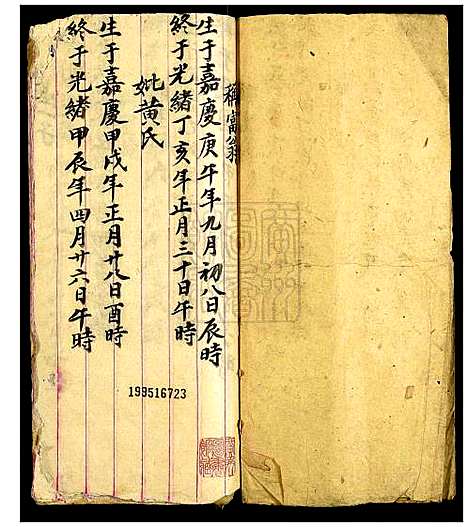 生于嘉慶庚午年九月初八日辰時
終于光緒丁亥年正月三十日午時
妣黄氏
生于嘉慶甲戌年正月廿八日酉時
終于光緒甲辰年四月廿六日午時
199516723